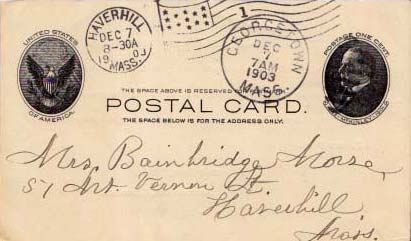 UNITED STATES
OF AMERICA.
HAVERHILL
DEC 7
8-30A
1903
MASS.
1
GEORGETOWN
DEC
7AM
1903
MASS.
POSTAGE ONE CENT.
THE SPACE ABOVE IS RESERVED FOR
POSTAL CARD.
THE SPACE BELOW IS FOR THE ADDRESS ONLY.
Mrs. Bainbridge Morse,
51 Mt. Vernon St
Haverhill
Mass.